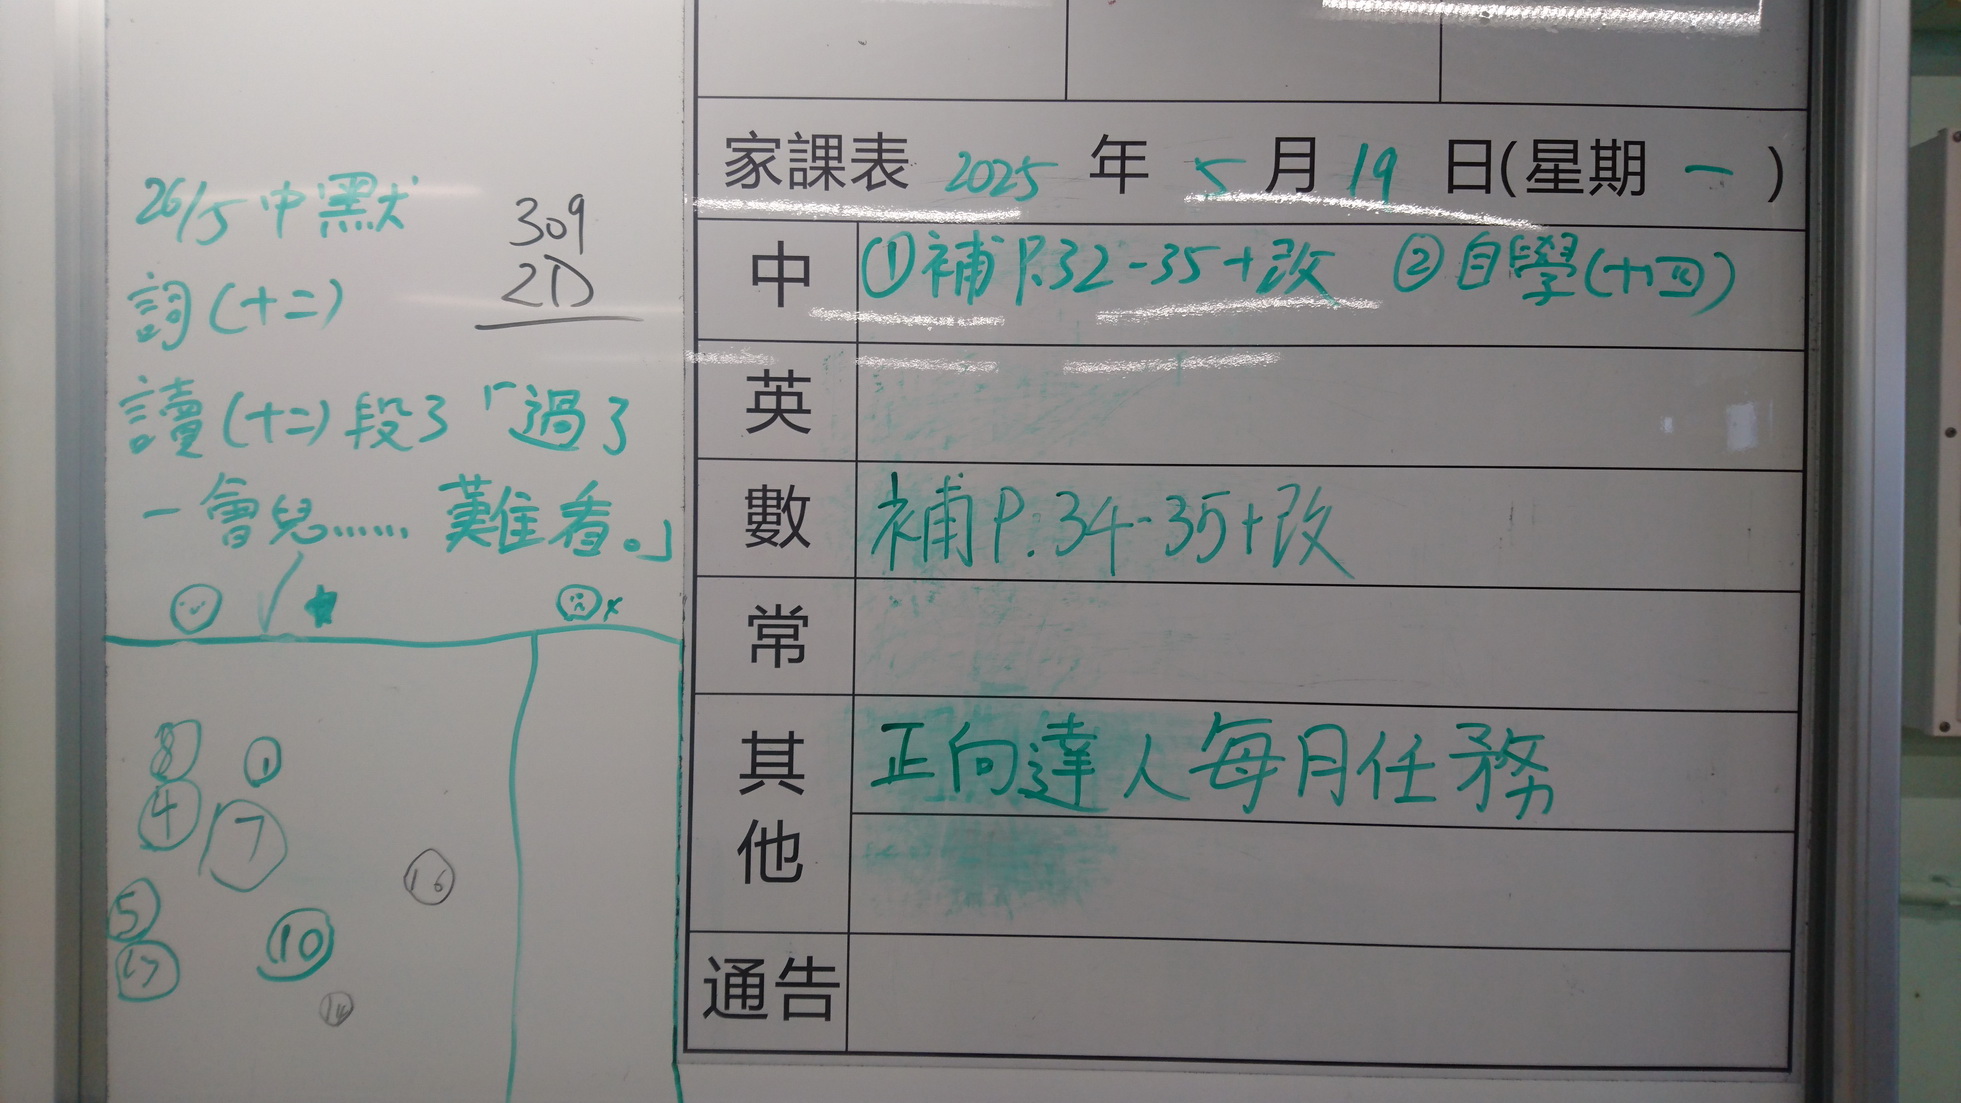 26/5 中默
詞(十二)
讀(十二)段3「過了
一會兒……難看。」
309
2D
8
1
4
7
16
5
10
17
家課表 2025 年 5 月 19 日(星期 一 )
中 ①補P.32-35+改 ②自學(十四)
英
數 補P.34-35+改
常
其他 正向達人每月任務
通告